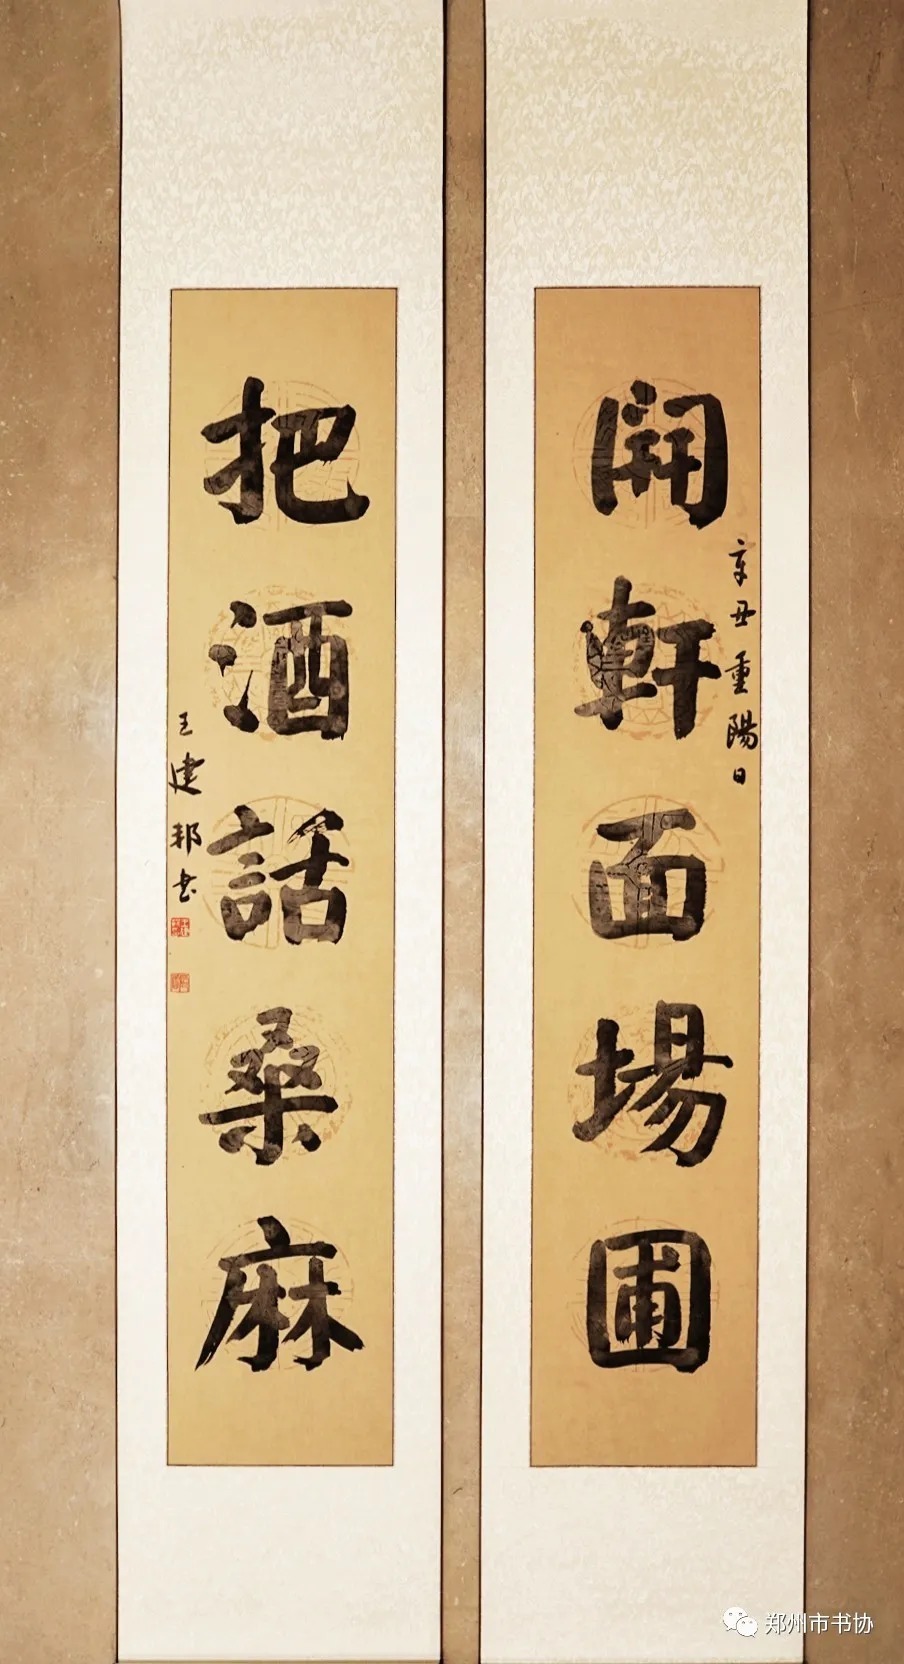 開軒面場圃
辛丑重陽日
把酒話桑麻
王建邦书
郑州市书协